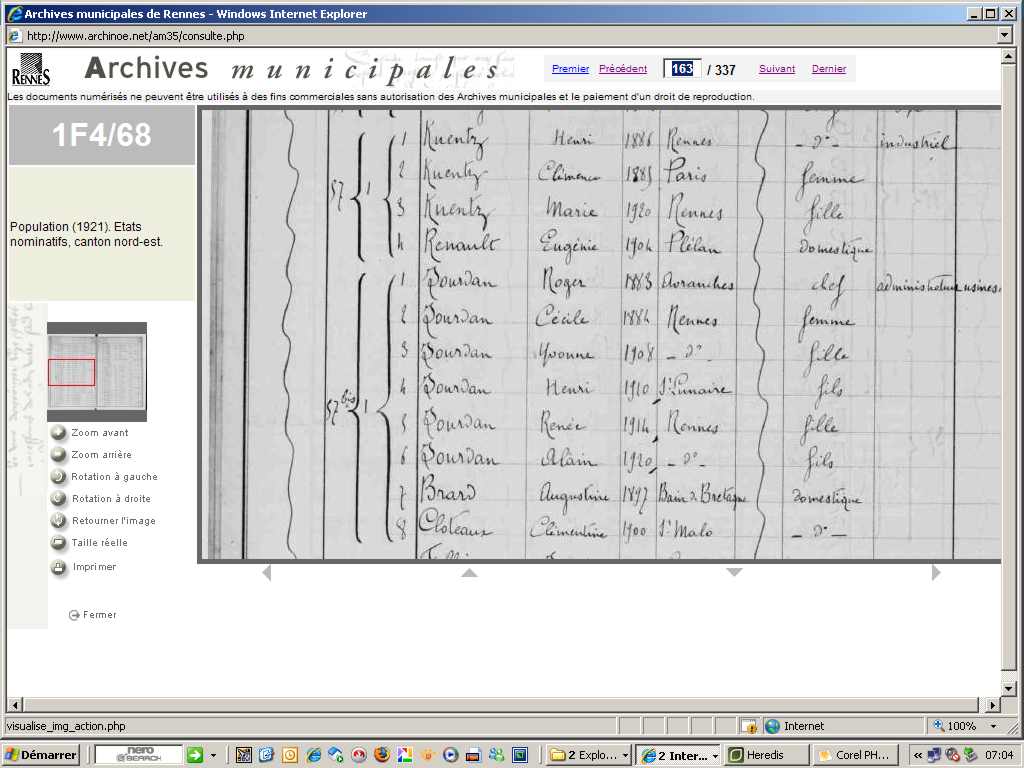 Archives municipales de Rennes - Windows Internet Explorer
http://www.archinoe.net/am35/consulte.php
RENNES
Archives municipales
Premier Précédent 163 / 337 Suivant Dernier
Les documents numérisés ne peuvent être utilisés à des fins commerciales sans autorisation des Archives municipales et le paiement d'un droit de reproduction.
1F4/68
Population (1921). Etats
nominatifs, canton nord-est.
Zoom avant
Zoom arrière
Rotation à gauche
Rotation à droite
Retourner l'image
Taille réelle
Imprimer
Fermer
1 Kuentz Henri 1886 Rennes - d° - industriel
2 Kuentz Clémence 1885 Paris femme
57 1
3 Kuentz Marie 1920 Rennes fille
4 Renault Eugénie 1904 Plélan domestique
1 Jourdan Roger 1883 Avranches chef administateur usines
2 Jourdan Cécile 1884 Rennes femme
3 Jourdan Yvonne 1908 - d° fille
4 Jourdan Henri 1910 St Lunaire fils
57 bis 1
5 Jourdan Renée 1914 Rennes fille
6 Jourdan Alain 1920 - d° - fils
7 Brard Augustine 1897 Bain d. Bretagne domestique
8 Cloteaux Clémentine 1900 St Malo - d° -
visualise_img_action.php
Internet
100%
Démarrer
nero
SEARCH
2 Explo...
2 Inter...
Heredis
Corel PH...
07:04